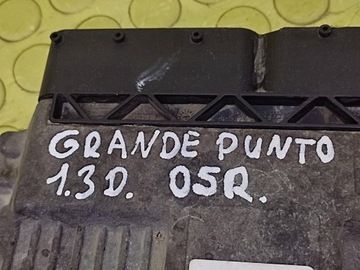 GRANDE PUNTO
1.3D. 05R.